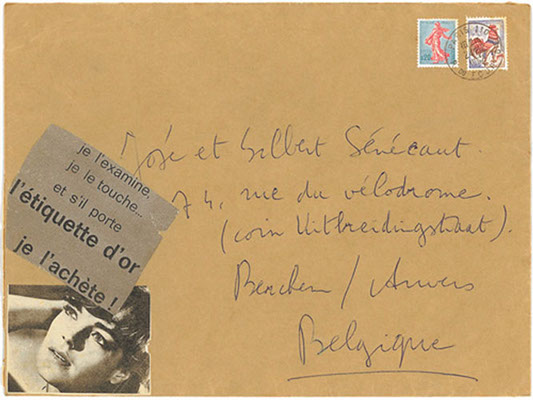 je l'examine,
je le touche...
et s'il porte
l'étiquette d'or
je l'achète !
José et Gilbert Sénécaut.
74, rue du vélodrome.
(coin Uitbreidingstraat).
Berchem / Anvers
Belgique